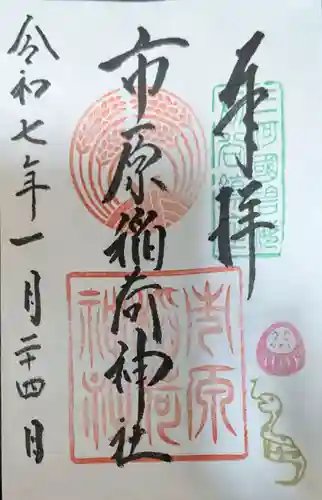 奉拝
市原稲荷神社
令和七年一月二十四日
市原
稲荷
神社